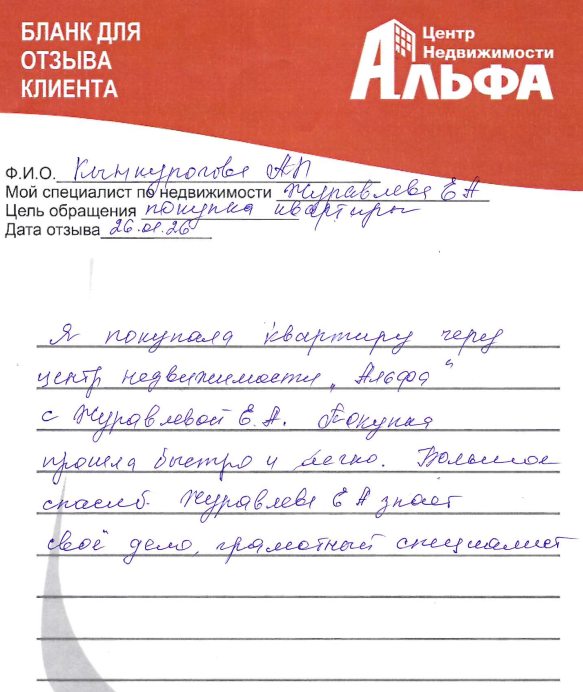 БЛАНК ДЛЯ
ОТЗЫВА
КЛИЕНТА
Центр
Недвижимости
АЛЬФА
Ф.И.О. АП
Мой специалист по недвижимости Журавлева Е А
Цель обращения покупка квартиры
Дата отзыва 26.01.26
Я покупала квартиру через
центр недвижимости „Альфа“
с Журавлевой Е.А. Покупка
прошла быстро и легко. Большое
спасиб. Журавлева Е А знает
своё дело, грамотный специалист